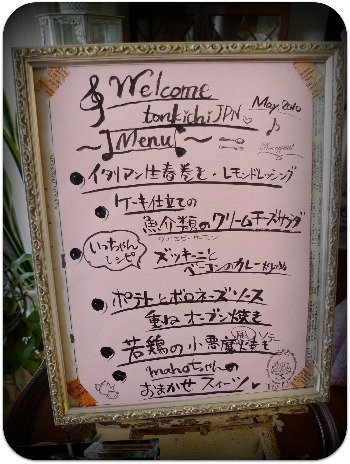 Welcome
tonkichi JPN
May 2010
~Menu~
イタリアン生春巻き・レモンドレッシング
ケーキ仕立ての
魚介類のクリームチーズサンド
いっちゃん
レシピ
ズッキーニと
ベーコンのカレー
ポテトとボロネーズソース
重ねオーブン焼き
若鶏の小悪魔風ソテー
mahoちゃんの
おまかせスイーツ